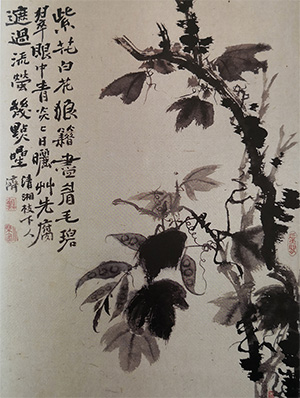 紫花白花狼籍盡眉毛碧
翠眼中青炎〻日曬艸先腐
遮過流螢幾點星
清湘枝下人
濟